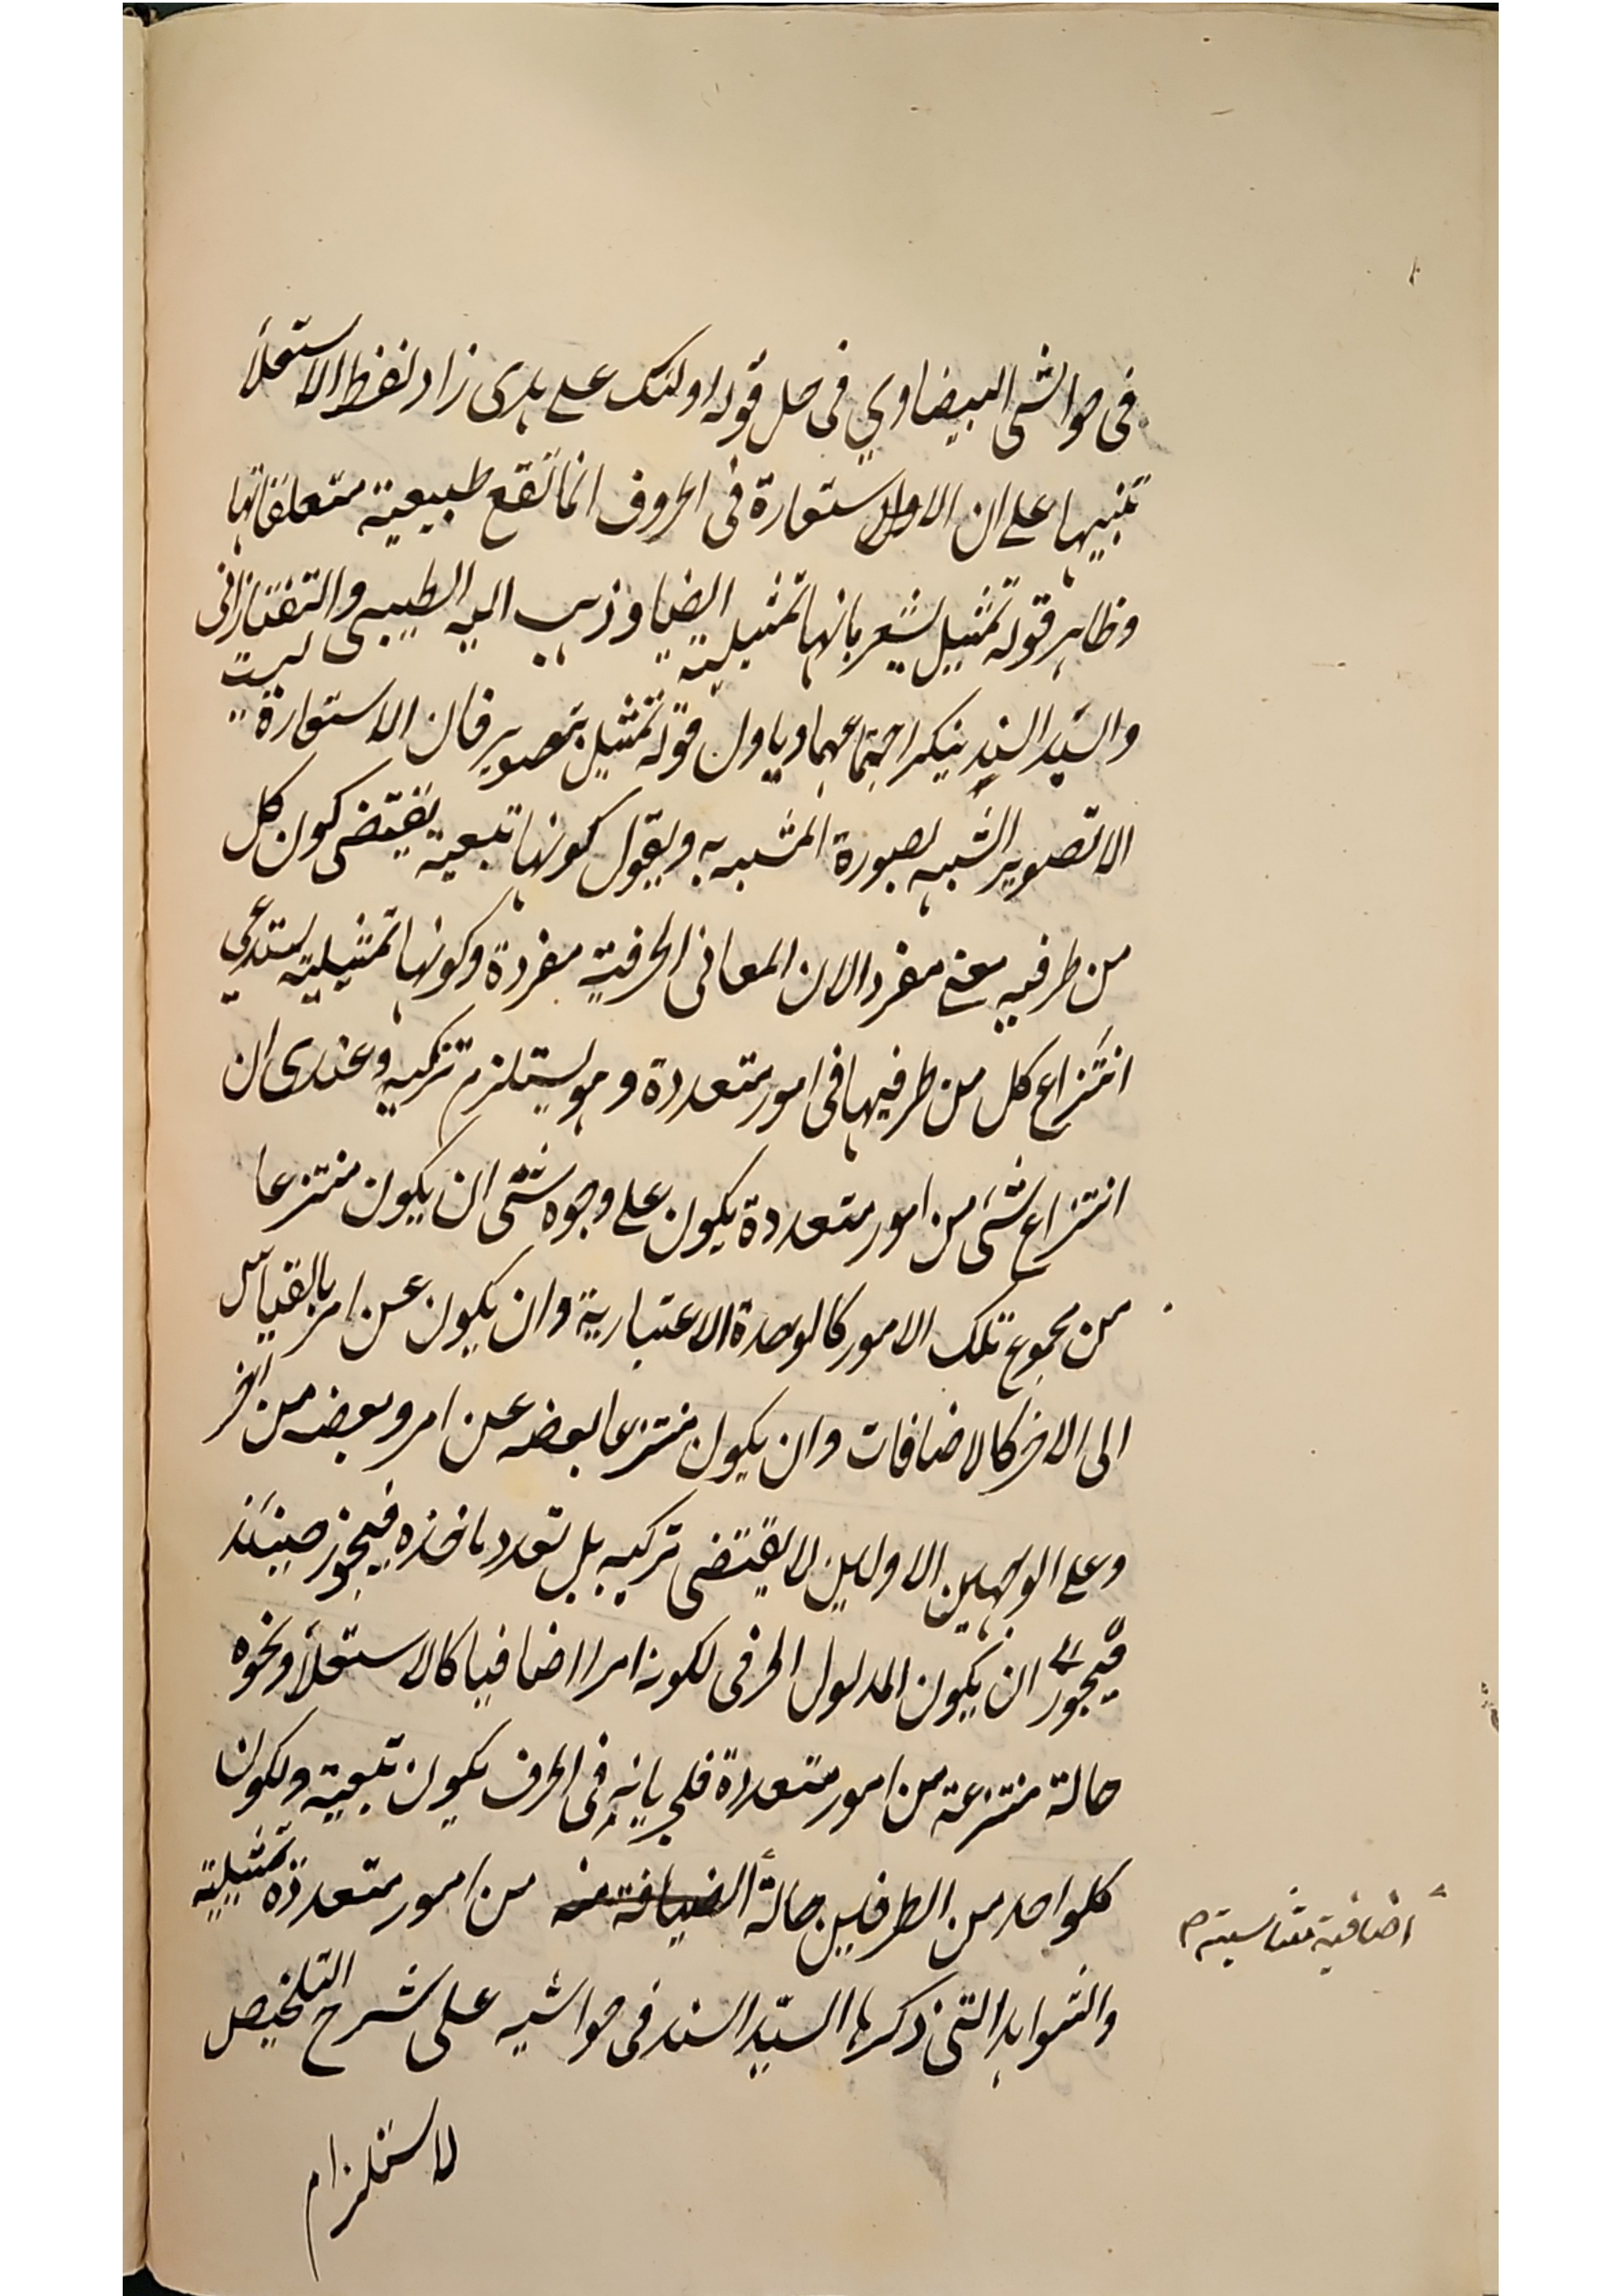 فى حواشى البيضاوي فى حل قوله اولئك على هدى زاد لفظ الاستعلاء
تنبيها على ان الاستعارة فى الحروف انما تقع طبيعية متعلقاتها
وظاهر قوله تمثيل يشعر بانها تمثيلية ايضا وذهب اليه الطيبى والتفتازانى
والسيد السند ينكر اجتماعهما وياول قوله تمثيل بتصوير فان الاستعارة ليست
الا تصوير المشبه بصورة المشبه به ويقول كونها تبعية يقتضى كون كل
من طرفيه معنى مفردا لان المعانى الحرفية مفردة وكونها تمثيلية يستدعى
انتزاع كل من طرفيها فى امور متعددة وهو يستلزم تركبه وعندى ان
انتزاع شئ من امور متعددة يكون على وجوه شتى ان يكون منتزعا
من مجموع تلك الامور كالوحدة الاعتبارية وان يكون عن امر بالقياس
الى الاخر كالاضافات وان يكون منتزعا بعضه عن امر وبعضه من آخر
وعلى الوجهين الاولين لا يقتضى تركبه بل تعدد ماخذه فيجوز حينئذ
فيجوز ان يكون المدلول الحرفى لكونه امرا اضافيا كالاستعلاء ونحوه
حالة منتزعة من امور متعددة فلجريانه فى الحرف يكون تبعية ولكون
كلواحد من الطرفين حالة من امور متعددة تمثيلية
اضافية
والشواهد التى ذكرها السيد السند فى حواشيه على شرح التلخيص
لاستلزام